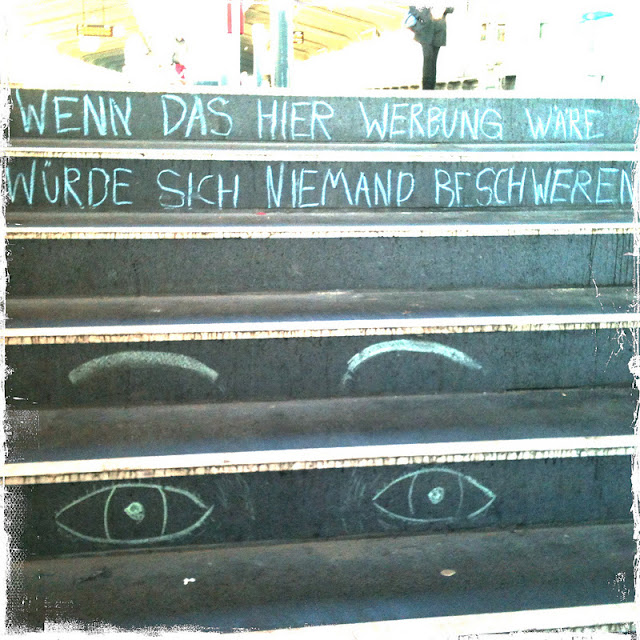 WENN DAS HIER WERBUNG WÄRE
WÜRDE SICH NIEMAND BESCHWEREN